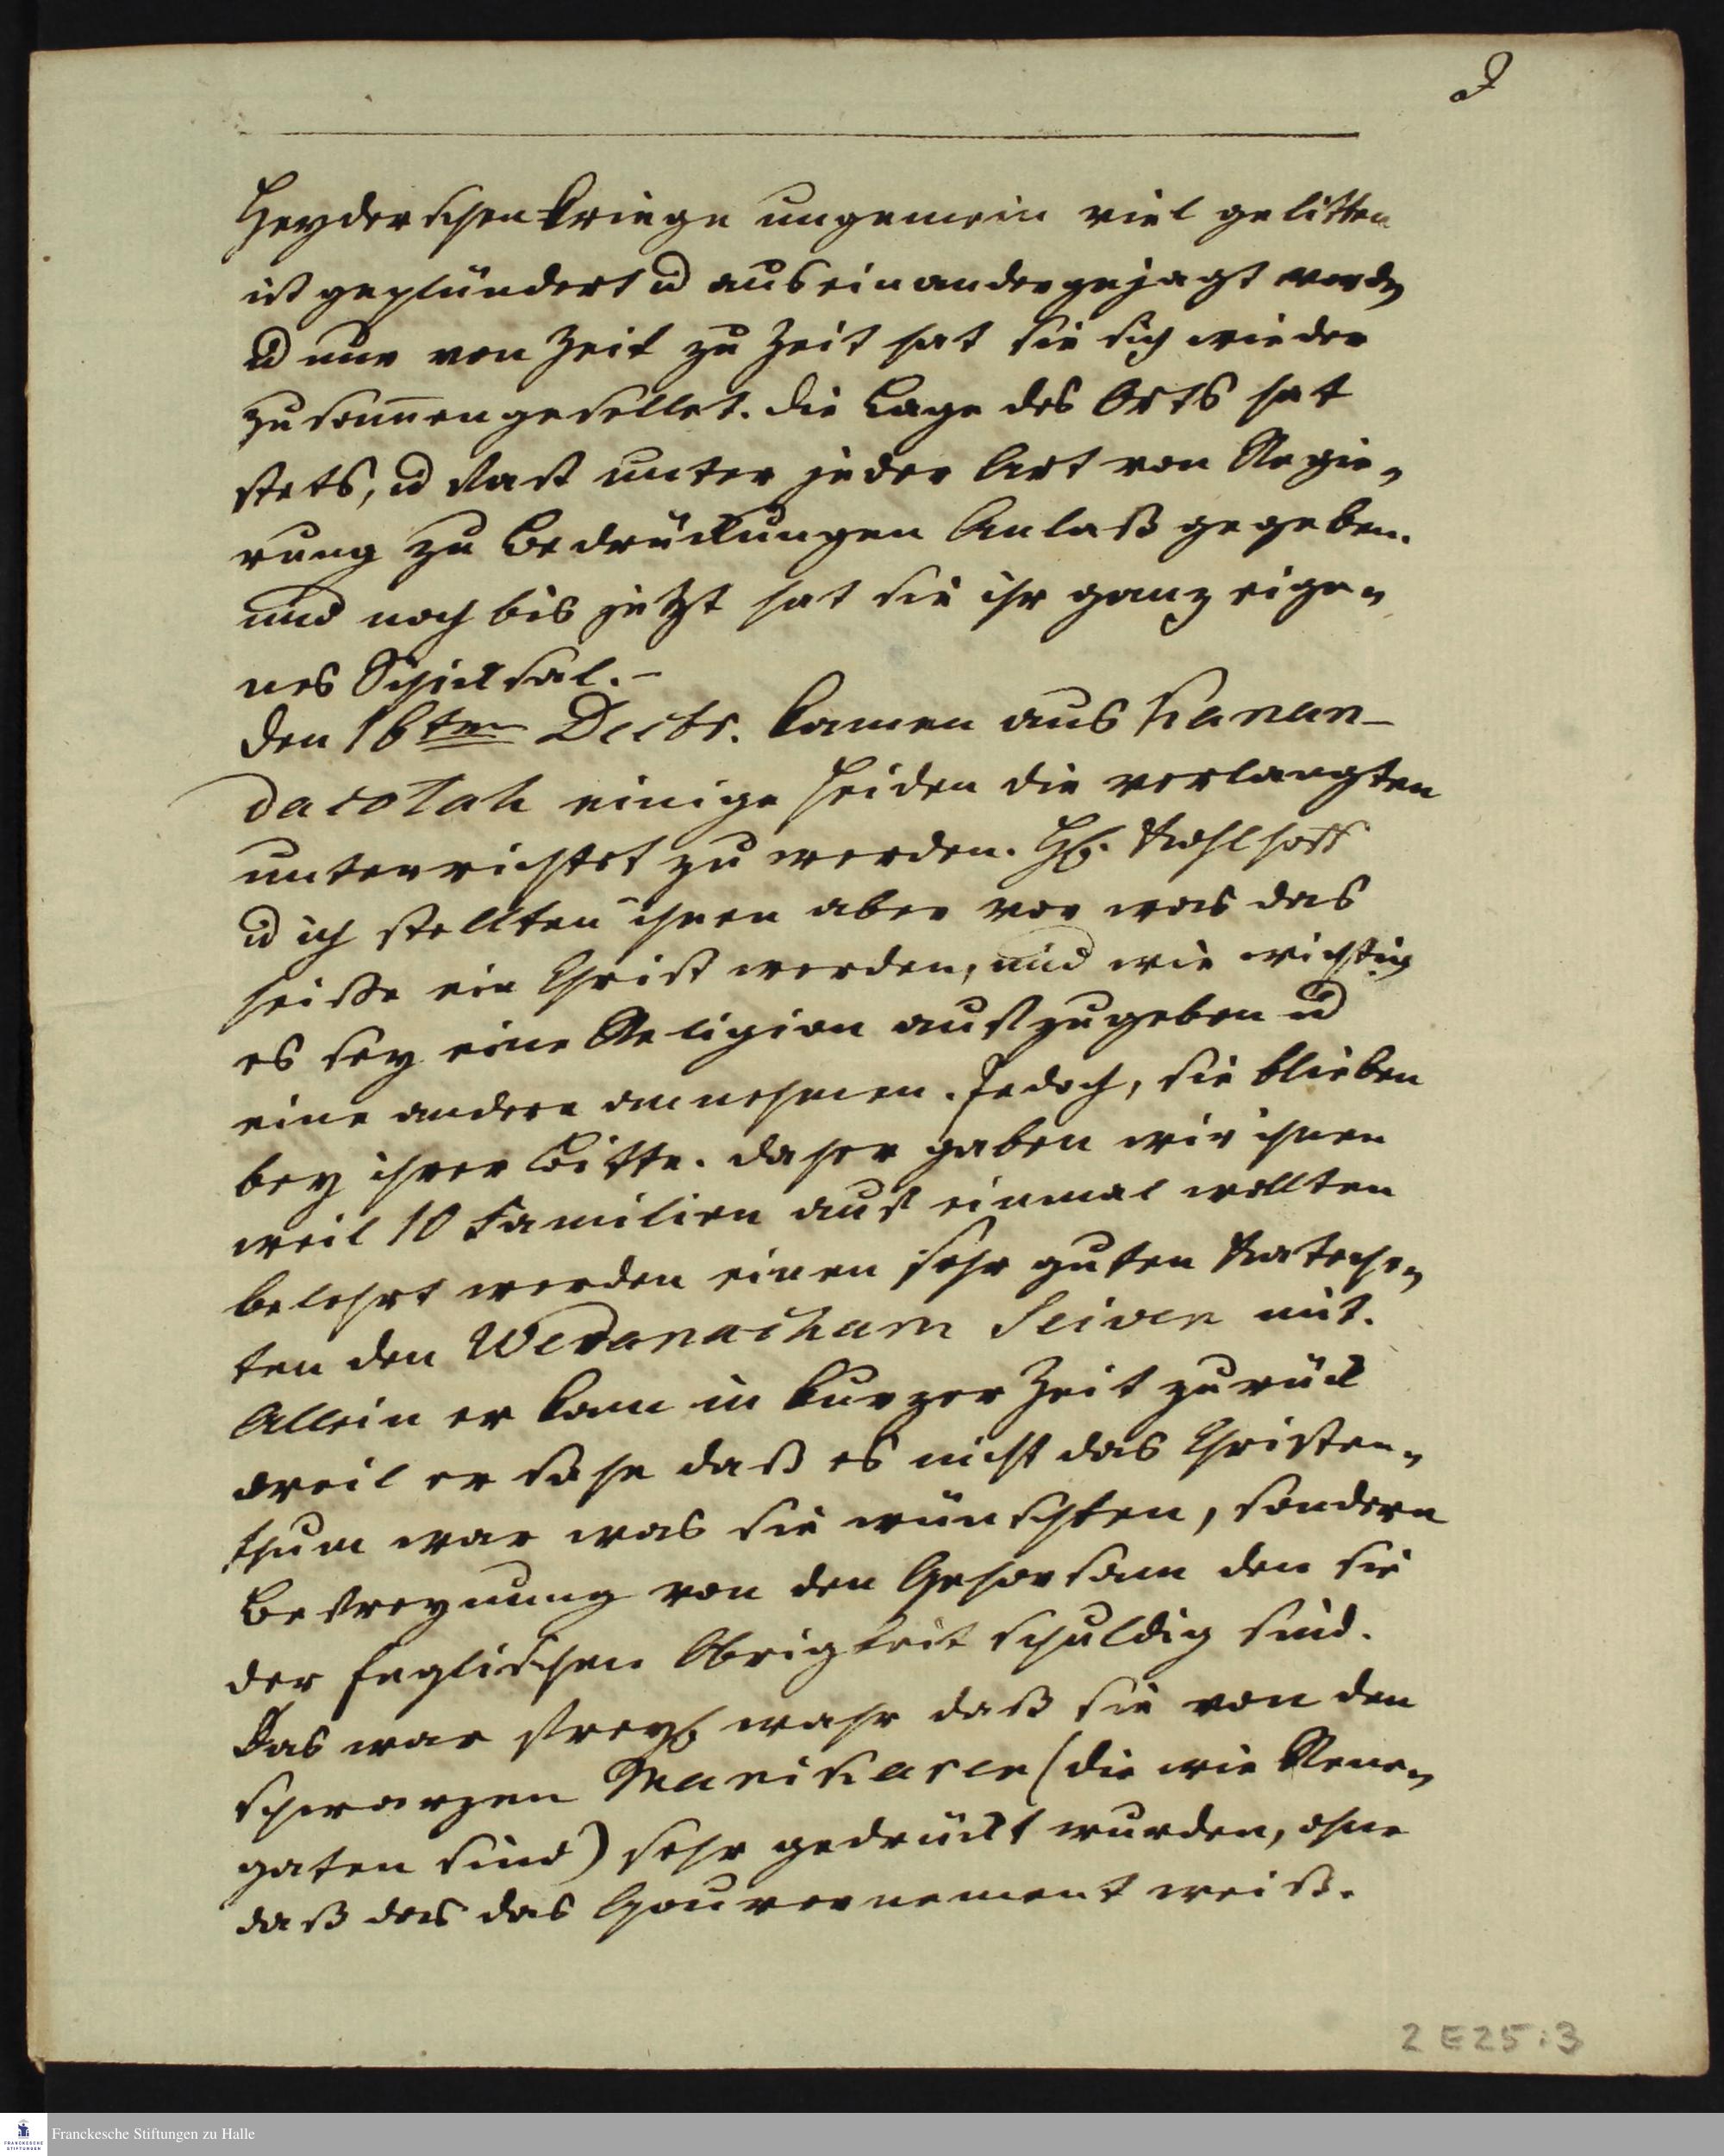 Heyderschen kriege ungemein viel gelitten
ist geplündert u auseinandergejagt word
u nur von Zeit zu Zeit hat sie sich wieder
zusammengesellet. die Lage des Orts hat
stets, u fast unter jeder Art von Regie-
rung zu Bedrückungen Anlaß gegeben.
und noch bis jetzt hat sie ihr ganz eige-
nes Schicksal.-
den 16ten Decbr. kamen aus Kanan-
dacotah einige Heiden die verlangten
unterrichtet zu werden. H. Kohlhoff
u ich stellten ihnen aber vor was das
heiße ein Christ werden, und wie wichtig
es sey eine Religion aufzugeben u
eine andere annehmen. Jedoch, sie blieben
bey ihrer Bitte. daher gaben wir ihnen
weil 10 Familien auf einmal wollten
belehrt werden einen sehr guten Kateche-
ten den Wedanacham mit.
Allein er kam in kurzer Zeit zurück
weil er sahe daß es nicht das Christen-
thum war was sie wünschten, sondern
Befreyung von den Gehorsam den sie
der Englischen Obrigkeit schuldig sind.
Das war freyl wahr daß sie von den
schwarzen Manikaren (die wie Rene-
gaten sind) sehr gedrückt wurden, ohne
daß das das Gouvernement weiß.
2 E 25 : 3
Franckesche Stiftungen zu Halle
FRANCKESCHE
STIFTUNGEN